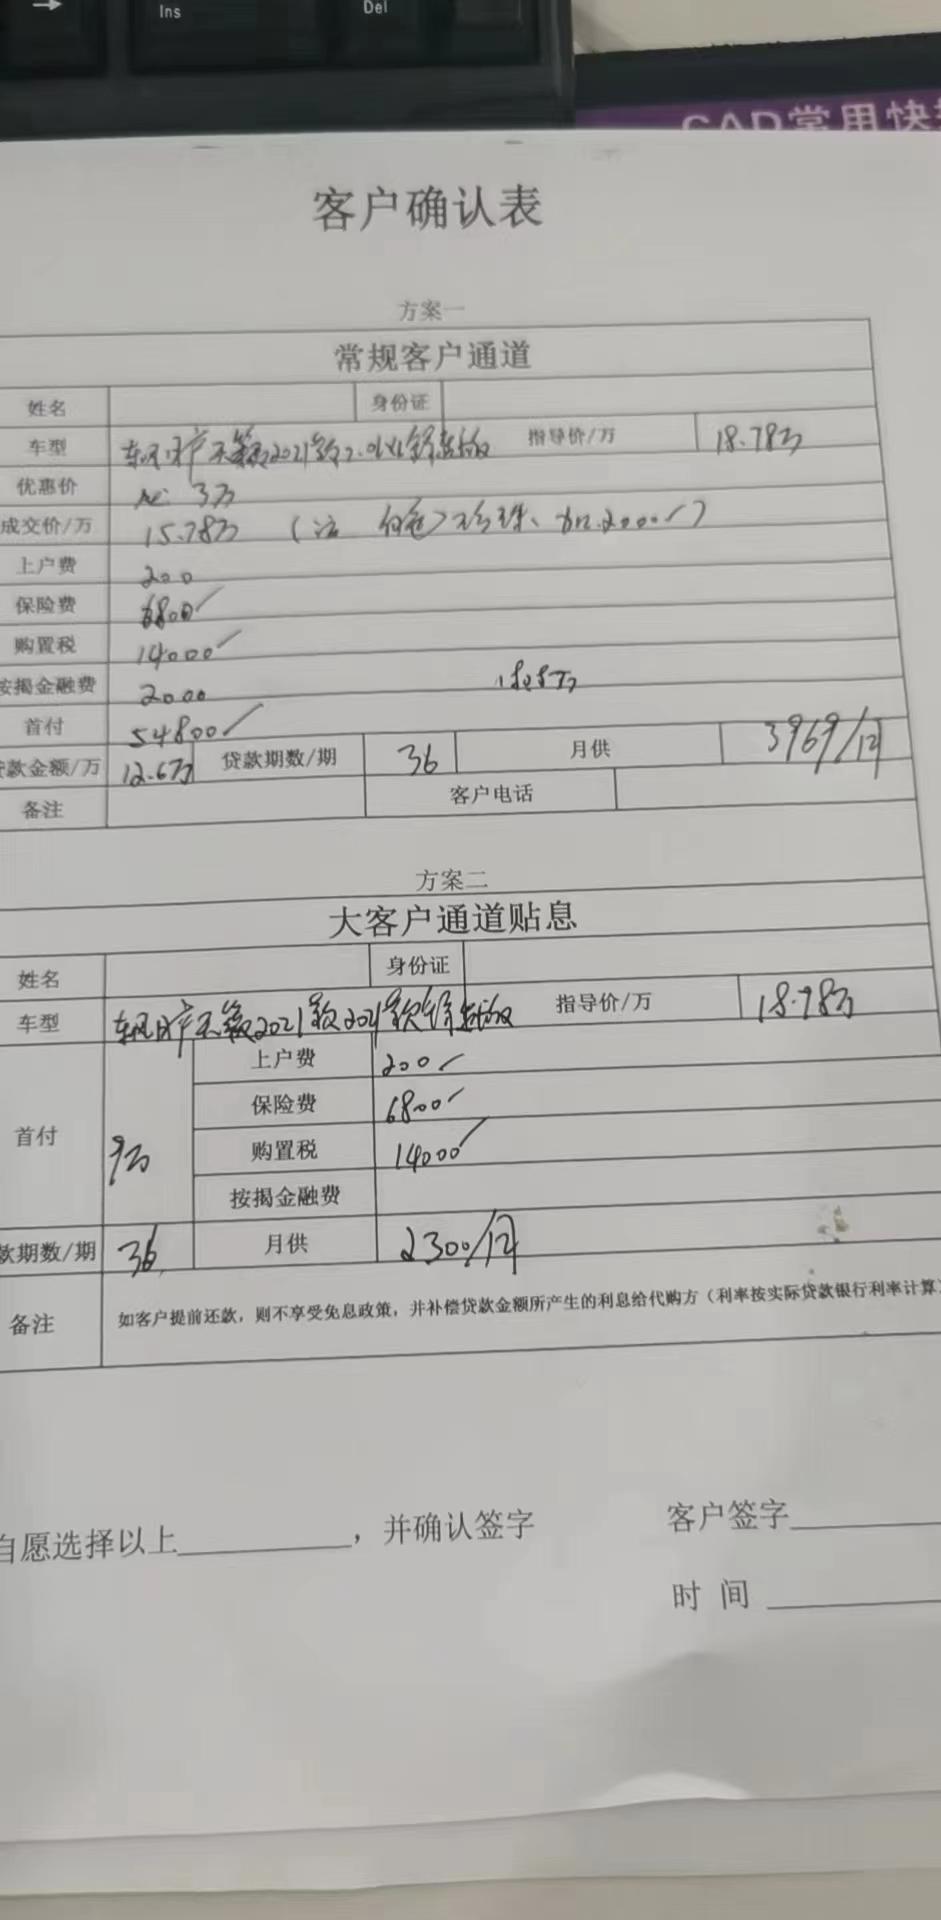 Ins Del
CAD常用快
客户确认表
方案一
常规客户通道
姓名 身份证
车型 东风日产天籁2021款2.0XL舒适版 指导价/万 18.78万
优惠价 3万
成交价/万 15.78万 (注 白色珍珠、加2000)
上户费 200
保险费 6800
购置税 14000
按揭金融费 2000
首付 54800
贷款金额/万 12.6万 贷款期数/期 36 月供 3969/月
备注 客户电话
方案二
大客户通道贴息
姓名 身份证
车型 东风日产天籁2021款2021款舒适版 指导价/万 18.78万
首付 9万 上户费 200
保险费 6800
购置税 14000
按揭金融费
款期数/期 36 月供 2300/月
备注 如客户提前还款，则不享受免息政策，并补偿贷款金额所产生的利息给代购方（利率按实际贷款银行利率计算）
自愿选择以上 ，并确认签字 客户签字
时 间